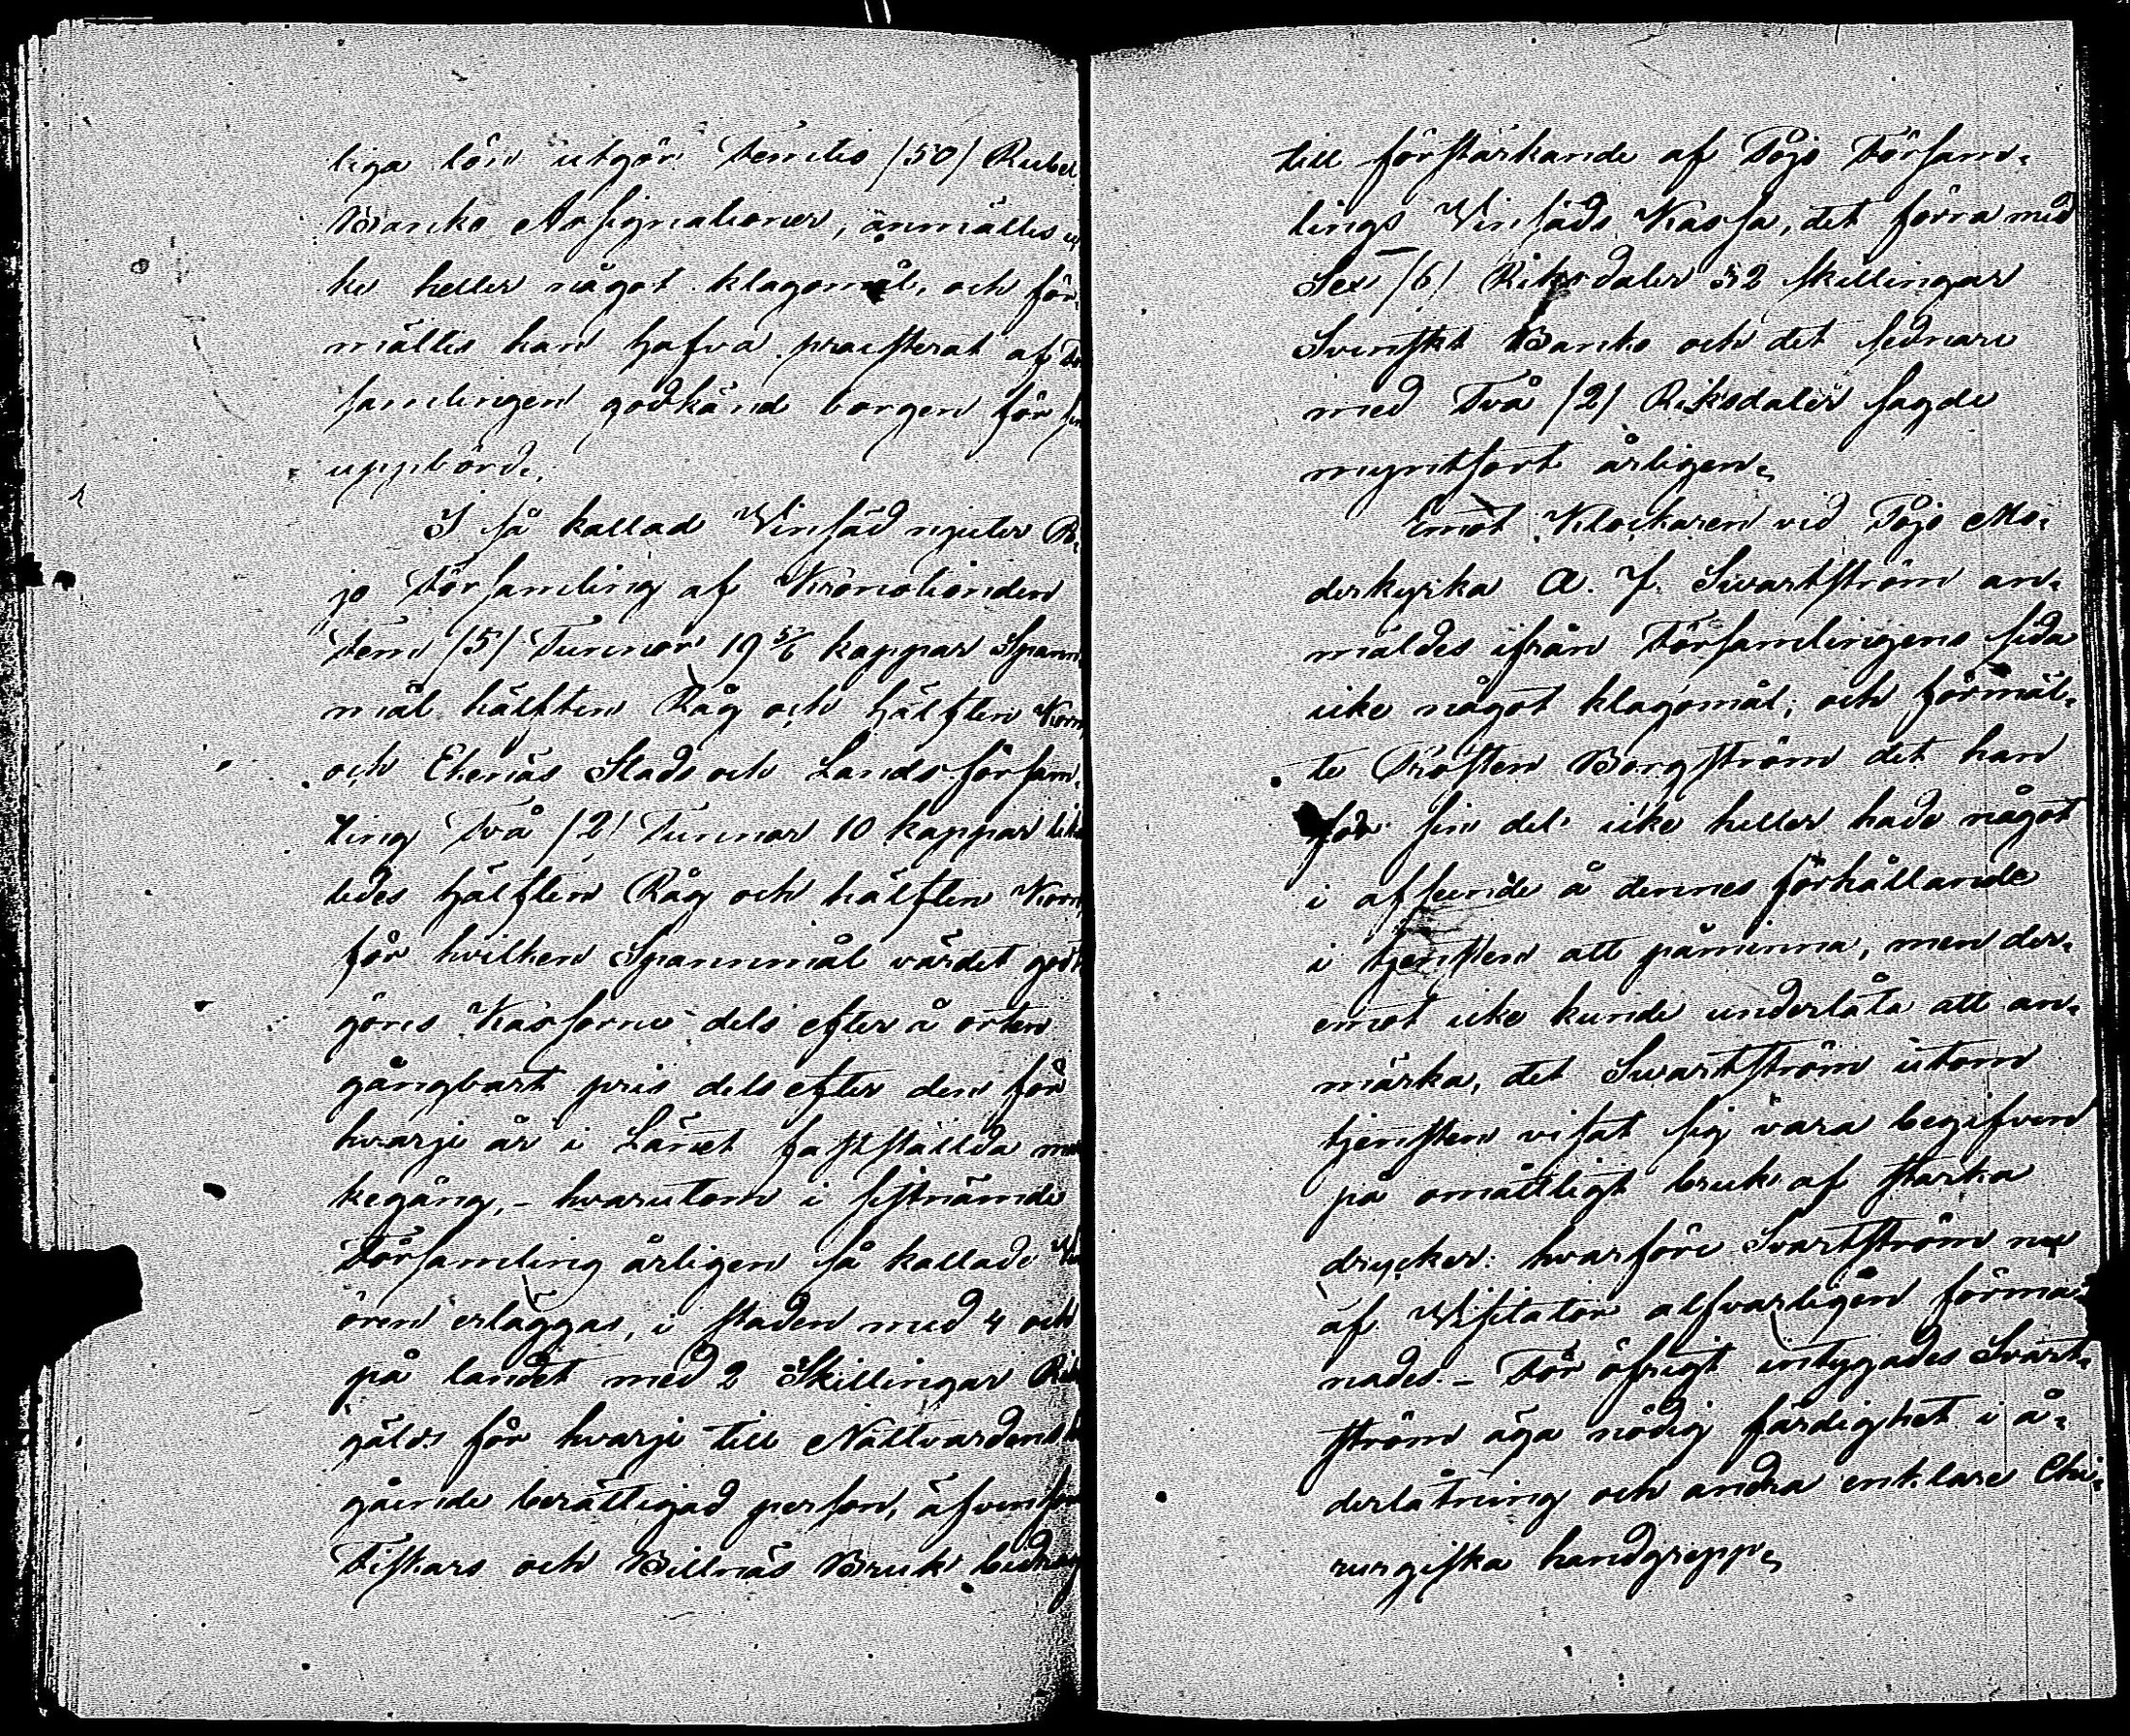 liga lön utgör Femtio /50/ Rubel
Banko Assignationer, anmältes ic
ke heller något klagomål, och för-
mältes han hafva præsterat af För
samlingen godkänd borgen för sin
uppbörd.
I så kallad Vinsäd njuter Po-
jo Församling af Kronotionden
Fem /5/ Tunnor 19 5/6 kappar Spann-
mål hälften Råg och hälften Korn,
och Ekenäs Stads och Lands försam-
ling Två /2/ Tunnor 10 kappar lika
ledes hälften Råg och hälften Korn,
för hvilken Spannmål värdet godt
göres Kassorne dels efter å orten
gångbart pris dels efter den för
hvarje år i Länet fastställda mar
kegång, - hvarutom i sistnämde
Församling årligen så kallade Vin
ören erläggas, i staden med 4 och
på landet med 2 Skillingar Riks
gälds för hvarje till Nattvarden
gående berättigad person, äfvensom
Fiskars och Billnäs Bruk bidrag
till förstärkande af Pojo Försam-
lings Vinsäds Kassa, det förra med
Sex /6/ Riksdaler 32 skillingar
Svenskt Banko och det sednare
med Två /2/ Riksdaler sagde
myntsort årligen.
Emot Klockaren vid Pojo Mo-
derkyrka A. J. Swartström an-
mäldes ifrån Församlingens sida
icke något klagomål; och förmäl-
te Prosten Borgström det han
för sin del icke heller hade något
i afseende å dennes förhållande
i tjensten att påminna, men der-
emot icke kunde underlåta att an-
märka, det Swartström utom
tjensten visat sig vara begifven
på omåttligt bruk af starka
drycker: hvarföre Svartström nu
af Visitator alfvarligen förma-
nades. - För öfrigt intygades Svart-
ström äga nödig färdighet i å-
derlåtning och andra enklare Chi-
rurgiska handgrepp.